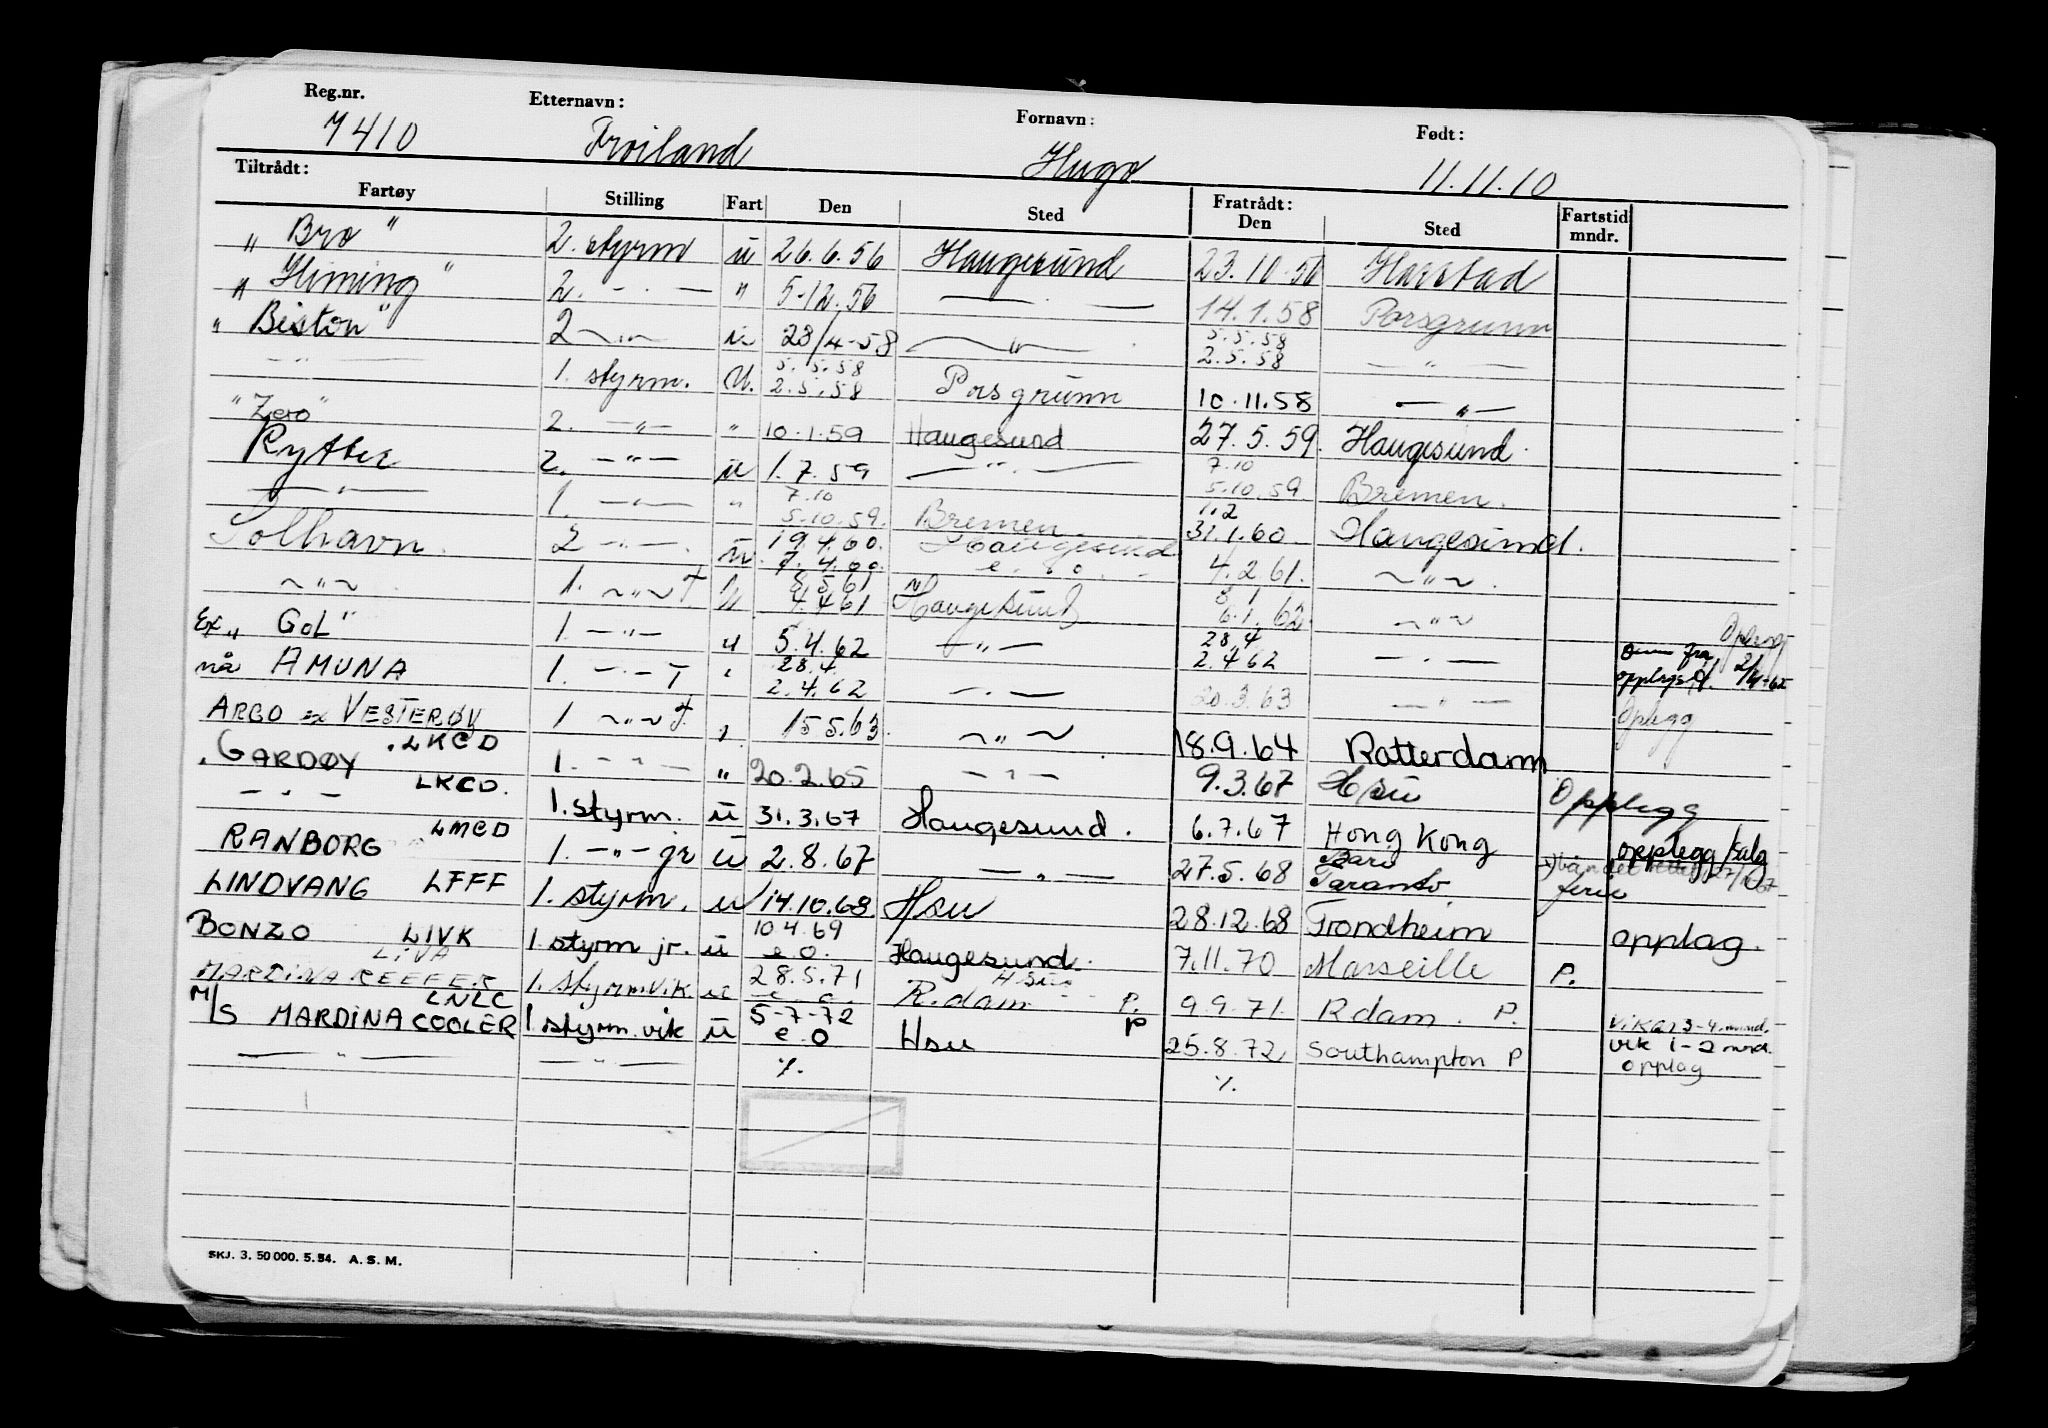 Reg.nr. Etternavn: Fornavn: Født:
7410 Frøiland Hugo 11.11.10
Tiltrådt: Fratrådt:
Fartøy Stilling Fart Den Sted Den Sted Fartstid mndr.
"Bro" 2. styrm u 26.6.56 Haugesund 23.10.56 Harstad
"Himing" 2. — . — " 5.12.56 — . — 14.1.58 Porsgrunn
"Biston" 2 — " — u 23/4-58 — " — 5.5.58 2.5.58 — " —
— " — 1. styrm. U. 5.5.58 2.5.58 Porsgrunn 10.11.58 — " —
"Zero" 2. — " — " 10.1.59 Haugesund 27.5.59 Haugesund.
Rytter 2. — " — u 1.7.59 — " — 7.10 5.10.59 Bremen.
— " — 1. — " — " 7.10 5.10.59. Bremen 1.2 31.1.60 Haugesund.
Solhavn. 2 — " — . u. 19.4.60. 7.4.60. Haugesund e.o. 4.2.61. — " — .
— " — . 1. — " — T u 8.5.61 4.4.61 Haugesund 8.1. 6.1.62 — " —
Ex "Gol" 1. — " — u 5.4.62 — " — 28.4 2.4.62 — . — fra opplags 2/4-62
nå AMUNA 1. — . — T " 28.4. 2.4.62 — . — 20.3.63 — " — Oplegg
ARGO ex VESTERØY 1 — " — T " 15.5.63 — " — 18.9.64 Rotterdam
"GARDØY LKCD 1. — " — " 20.2.65 — " — 9.3.67 Hsu Opplegg
— " — LKCD. 1. styrm. u 31.3.67 Haugesund. 6.7.67 Hong Kong opplegg/salg
RANBORG LMCD 1. — " — jr u 2.8.67 — " — 27.5.68 Bari Taranto ferie
LINDVANG LFFF 1. styrm. u 14.10.68 Hsu 28.12.68 Trondheim opplag.
BONZO LIVK 1. styrm jr. u 10.4.69 e.o. Haugesund. 7.11.70 Marseille P.
MARDINA REEFER LIVA 1. styrm. vik. u 28.5.71 e.o. Hsu R.dam P. 9.9.71. Rdam. P. vikar 3-4. mnd.
M/S MARDINA COOLER LNLC 1. styrm. vik u 5-7-72 e.o Hsu P 25.8.72 Southampton P vik 1-2 mnd.
— " — — " — ٪. ٪. opplag
SKJ. 3. 50 000. 5.54. A. S. M.